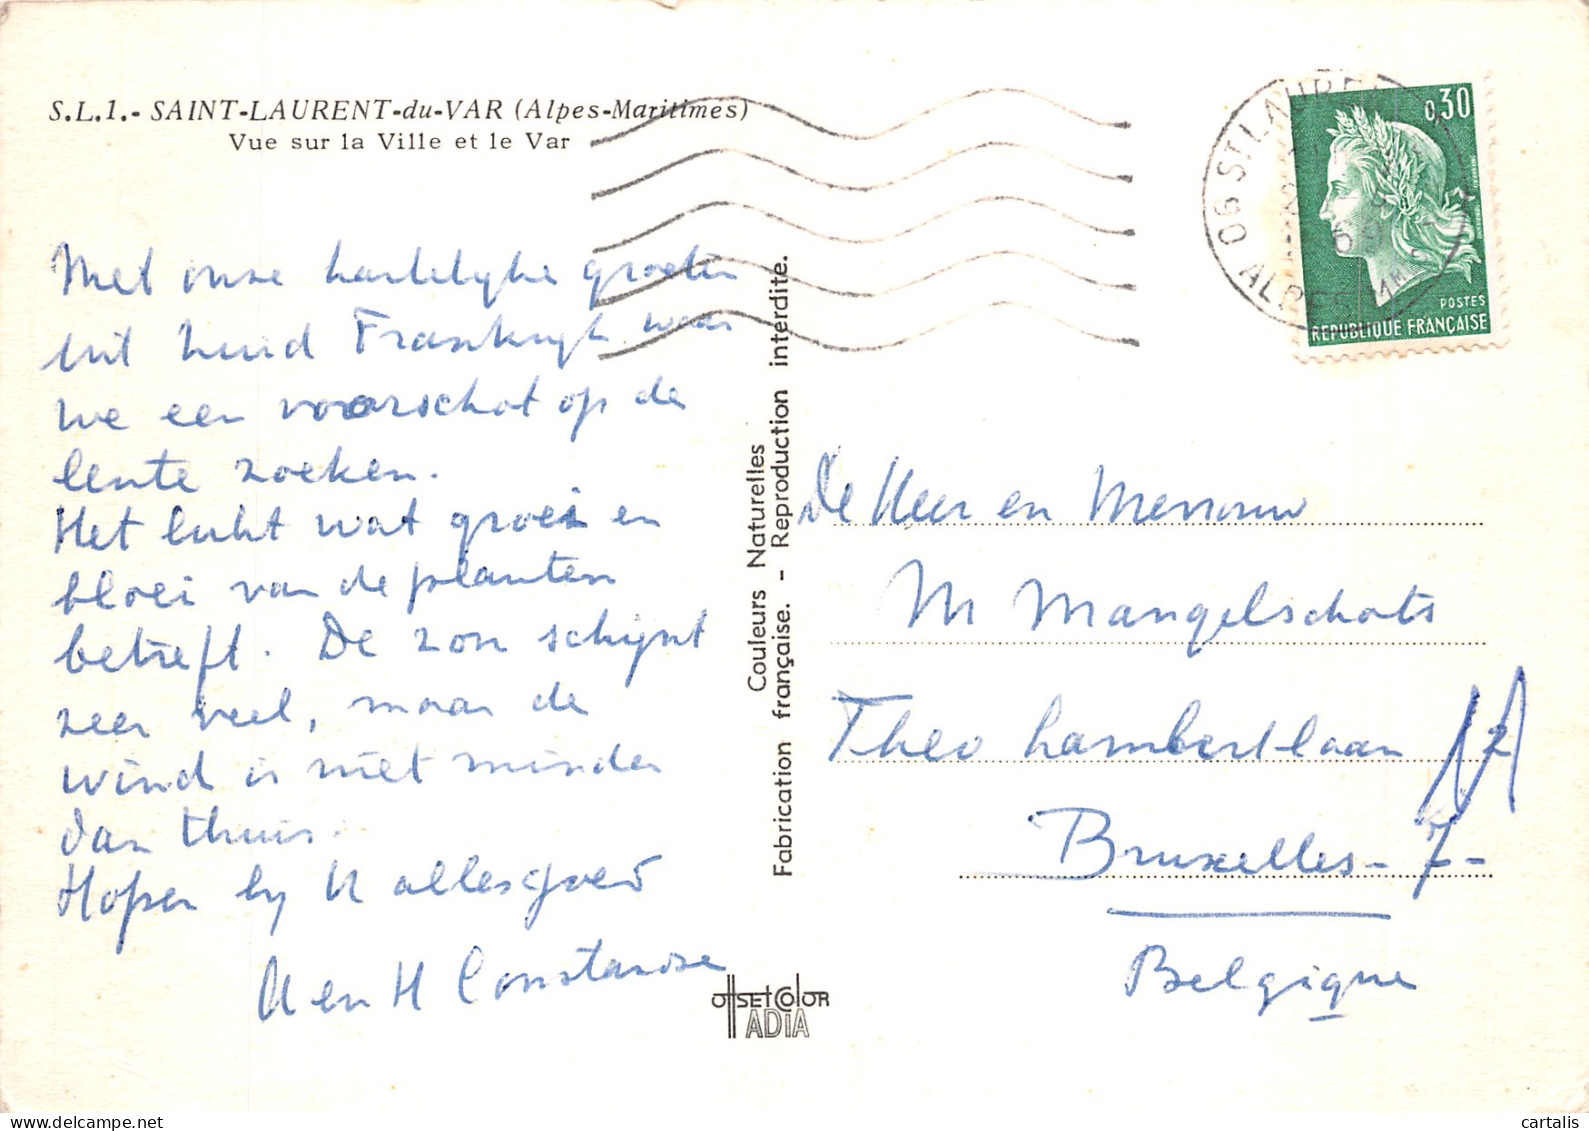 S.L.1.- SAINT-LAURENT-du-VAR (Alpes-Maritimes)
Vue sur la Ville et le Var
Met onze hartelijke groeten
uit Zuid Frankrijk waar
we een voorschot op de
lente zoeken.
Het lukt wat groei en
bloei van de planten
betreft. De zon schijnt
zeer veel, maar de
wind is niet minder
dan thuis.
Hopen bij U alles goed
en H Constandse
Couleurs Naturelles
Fabrication française. - Reproduction interdite.
OffSET COLOR
ADIA
06 ST LAURE
ALPES MMES
0,30
POSTES
REPUBLIQUE FRANÇAISE
De Heer en Mevrouw
M Mangelschots
Theo Lambertlaan
Bruxelles - 7 -
Belgique
cartalis
www.delcampe.net